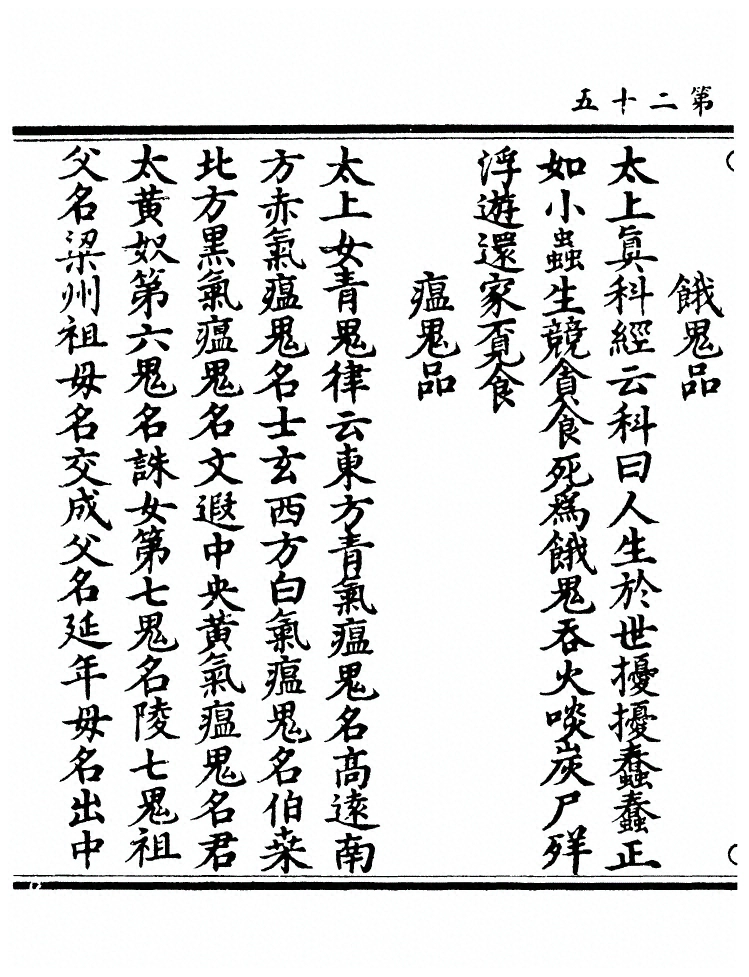 第二十五
餓鬼品
太上眞科經云科曰人生於世擾擾蠢蠢正
如小蟲生競貪食死爲餓鬼吞火啖炭尸殃
浮遊還家覓食
瘟鬼品
太上女青鬼律云東方青氣瘟鬼名高遠南
方赤氣瘟鬼名士玄西方白氣瘟鬼名伯桒
北方黒氣瘟鬼名文遐中央黄氣瘟鬼名君
太黄奴第六鬼名誅女第七鬼名陵七鬼祖
父名梁州祖母名交成父名延年母名出中